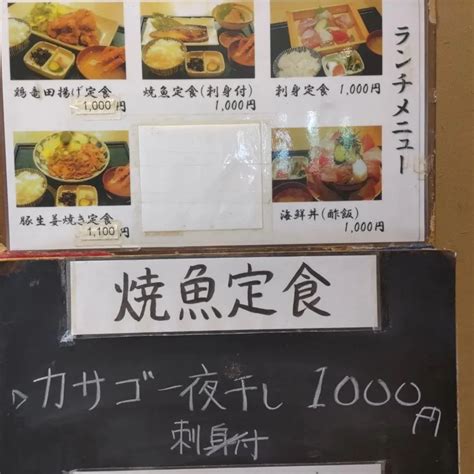 ランチメニュー
鶏竜田揚げ定食
1,000円
焼魚定食(刺身付)
1,000円
刺身定食 1,000円
豚生姜焼き定食
1,100円
海鮮丼(酢飯)
1,000円
焼魚定食
▷カサゴ一夜干し 1000円
刺身付